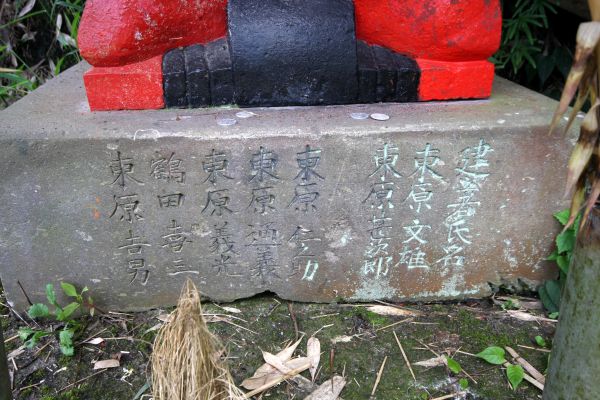 建立氏名
東原文雄
東原甚次郎
東原仁助
東原 義
東原義光
鶴田幸三
東原吉男